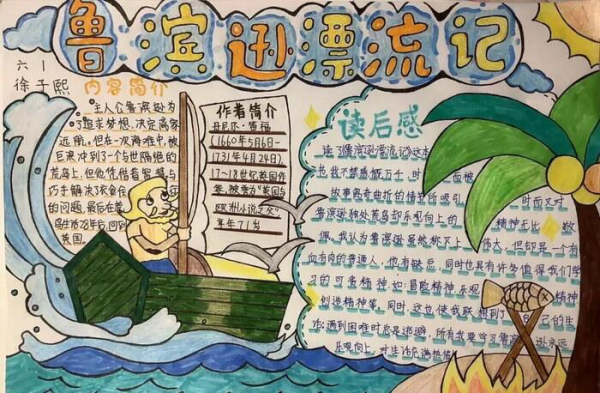 鲁滨逊漂流记
六1
徐子熙
内容简介
主人公鲁滨逊为
了追求梦想,决定离家
远航,但在一次海难中,被
巨浪冲到了个与世隔绝的
荒岛上,但他凭借着智慧与
巧手解决了衣食住
的问题,最后在荒
岛生活28年后,回到
英国。
作者简介
丹尼尔·笛福
(1660年5月6日-
1731年4月24日),
17-18世纪英国作
家,被誉为"英国与
欧洲小说之父"
享年71岁
读后感
读《鲁滨逊漂流记》这本
让我不禁感慨万千,时 面被
故事离奇曲折的情节所吸引, 时而又对
鲁滨逊独处荒岛却乐观向上的 精神无比 敬
佩。我认为鲁滨逊虽然称不上 伟大,但却是一个有
血有肉的普通人,他有缺点,同时也具有许多值得我们学
习的可贵精神,如:冒险精神、乐观 精神
创造精神等。同时,这也使我联想到了 自己的生
活:遇到困难时总是逃避,所有我要守 鲁滨 逊永远
乐观向上,对生活充满热情